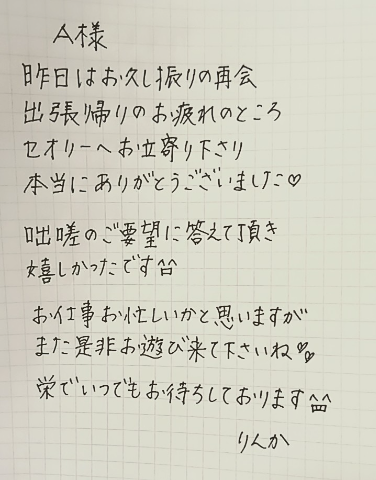 A様
昨日はお久し振りの再会
出張帰りのお疲れのところ
セオリーへお立寄り下さり
本当にありがとうございました♡
咄嗟のご要望に答えて頂き
嬉しかったです^^
お仕事お忙しいかと思いますが
また是非お遊び来て下さいね♡♡
栄でいつでもお待ちしております^^
りんか